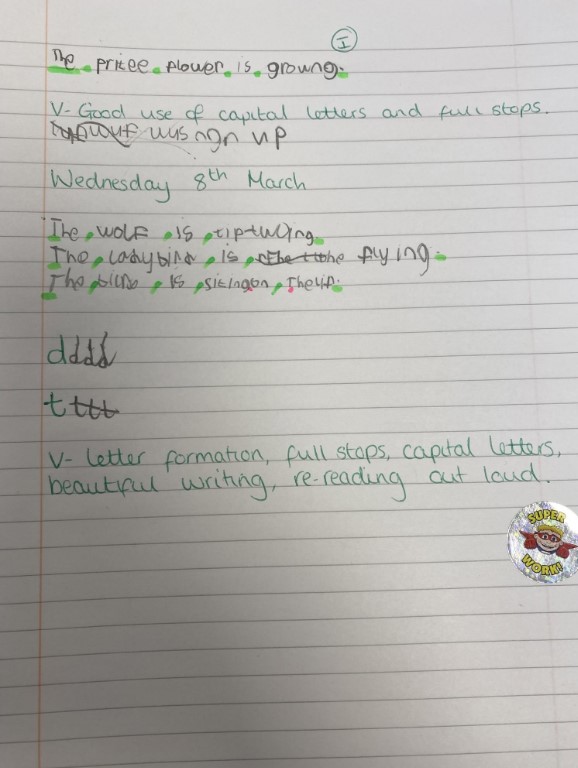 I
The pritee flower is growng.
V- Good use of capital letters and full stops.
up
Wednesday 8th March
The wolf is
The ladybird is the flying.
The is
dddd
tttt
V- letter formation, full stops, capital letters,
beautiful writing, re-reading out loud.
SUPER
WORK!